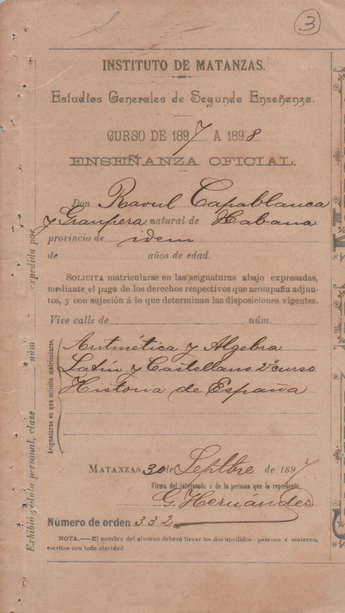 3
INSTITUTO DE MATANZAS.
Estudios Generales de Segunda Enseñanza.
CURSO DE 1897 A 1898
ENSEÑANZA OFICIAL.
Don Raoul Capablanca
y Graupera natural de Habana
provincia de idem
de años de edad.
SOLICITA matricularse en las asignaturas abajo expresadas,
mediante el pago de los derechos respectivos que acompaña adjun-
tos, y con sujeción á lo que determinan las disposiciones vigentes.
Vive calle de núm.
Asignaturas en que solicita matricularse.
Aritmética y Algebra
Latin y Castellano 2º curso
Historia de España
MATANZAS 30 de Septbre de 1897
Firma del interesado ó de la persona que lo represente.
G. Hernández
Número de orden 332
NOTA.—El nombre del alumno deberá llevar los dos apellidos paterno y materno,
escritos con toda claridad.
Exhibió cédula personal, clase núm expedida por